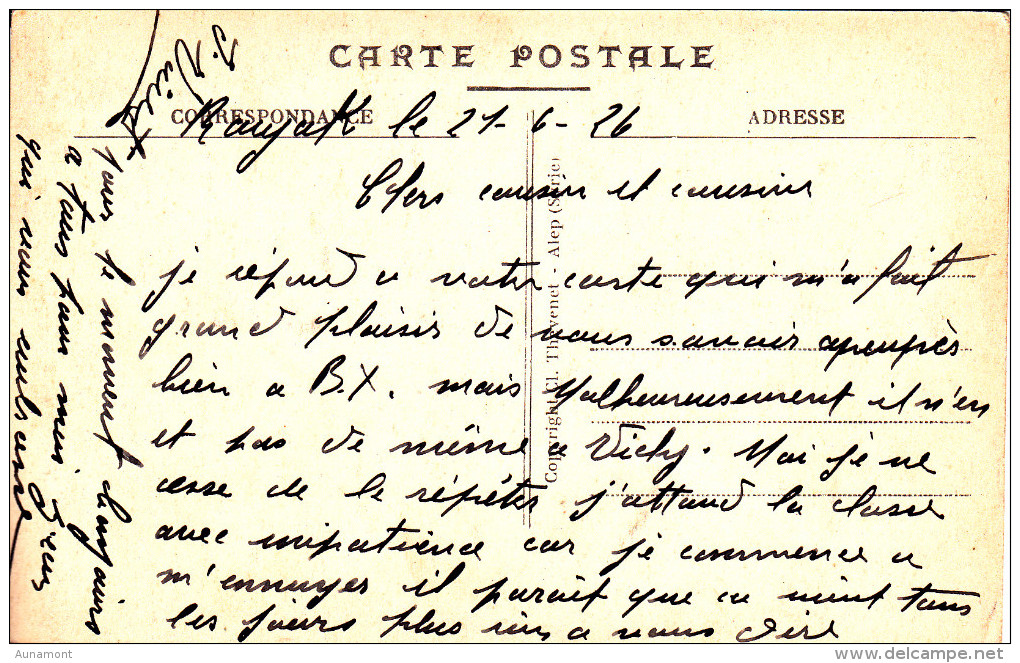 CARTE POSTALE
CORRESPONDANCE
ADRESSE
Rayak le 27-6-26
Chers cousin et cousine
je répond a votre carte qui m'a fait
grand plaisir de vous savoir apeuprès
bien a B.X. mais Malheureusement il n'en
et pas de même a Vichy. Moi je ne
cesse de le répéter j'attand la classe
avec impatience car je commence a
m'ennuyer il parait que ca vient tous
les jours plus rien a vous dire
pour le moment bonjours
a tous pour moi
qui vous embrasse
Copyright Cl. Thévenet - Alep (Syrie)
Aunamont
delcampe.net